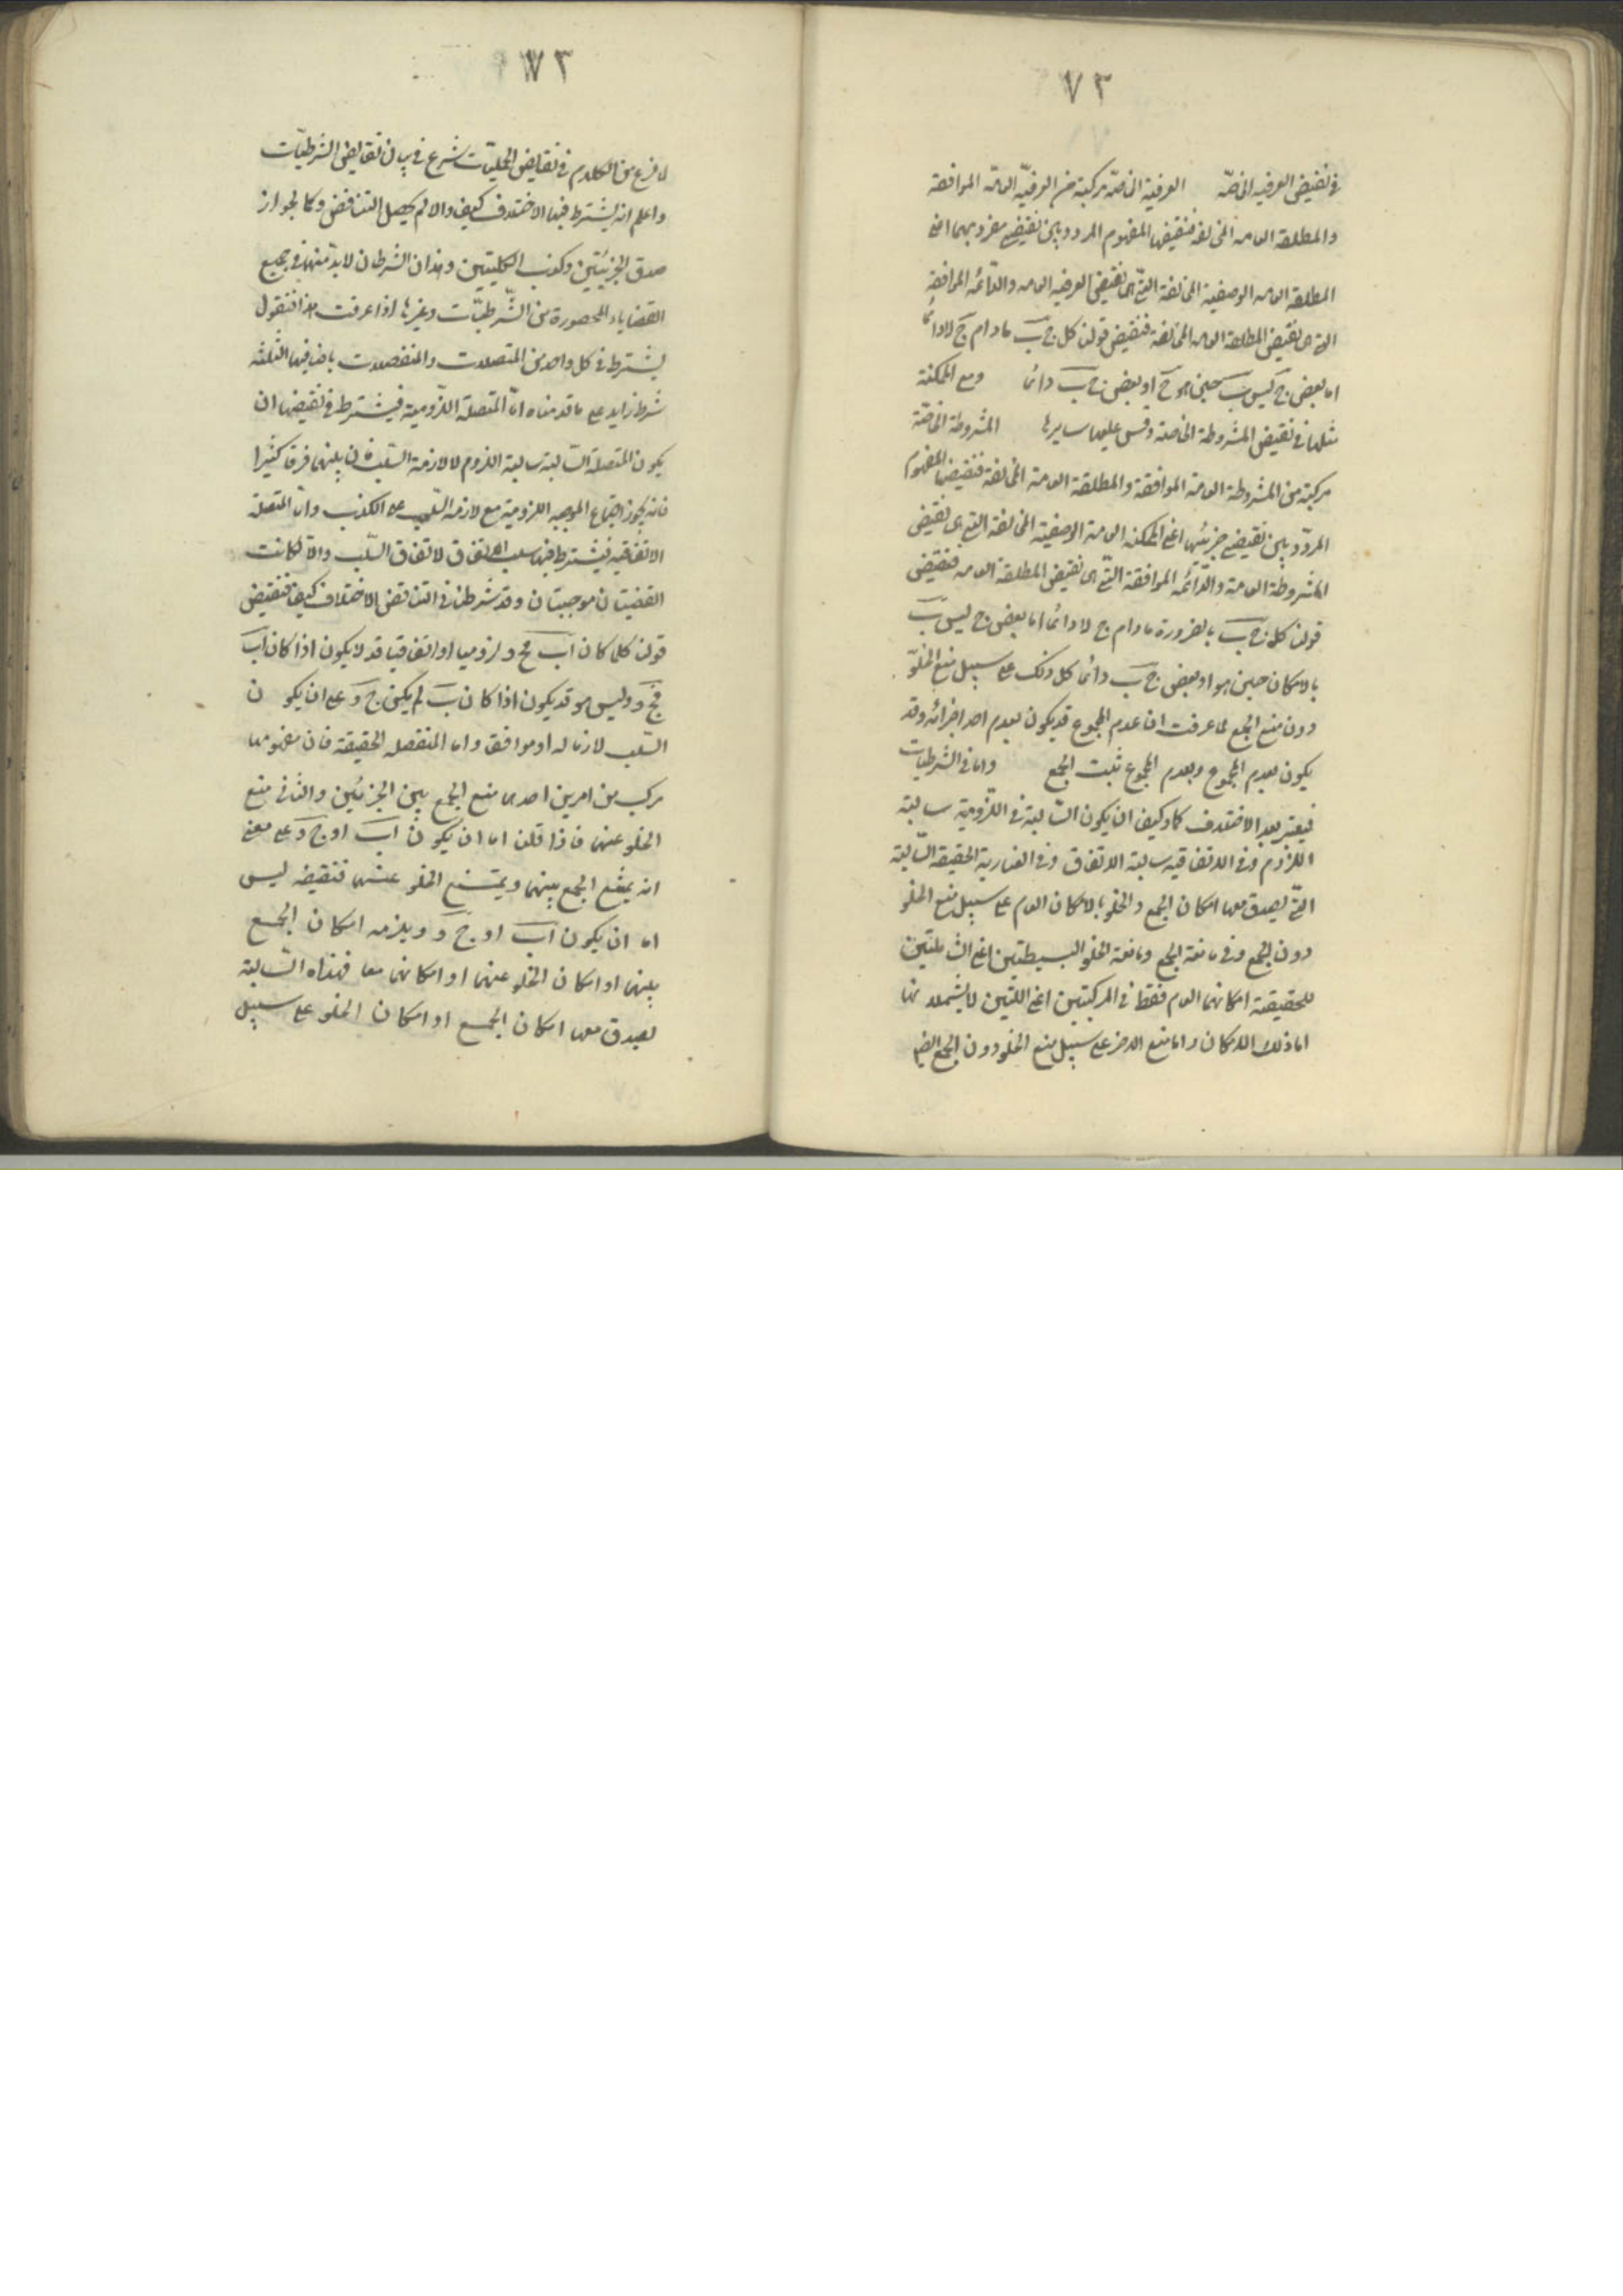 ٧٣
في نقيض العرفيه الخاصّه العرفية الخاصّه مركبة من العرفيّه العامّه الموافقة
والمطلقه العامه المخالفه فنقيضها المفهوم المردد بين نقيضي مفرديهما اعني
المطلقه العامه الوصفية المخالفة التي هي نقيض العرفيه العامه والدّائمه الموافقه
التي هي نقيض المطلقة العامه المخالفة فنقيض قولنا كل ج ب ما دام ج لا دائما
اما بعض ج ليس ب حين هو ج او بعض ج ب دائما ومع الممكنة
مثلها في نقيض المشروطة الخاصة وقس عليهما سايرها المشروطة الخاصّة
مركبة من المشروطة العامة الموافقة والمطلقة العامة المخالفة فنقيضها المفهوم
المردّد بين نقيضي جزئيها اعني الممكنه العامة الوصفية المخالفة التي هي نقيض
المشروطة العامة والدّائمه الموافقة التي هي نقيض المطلقة العامه فنقيض
قولنا كل ج ب بالضرورة ما دام ج لا دائما اما بعض ج ليس ب
بالامكان حين هو او بعض ج ب دائما كل ذلك على سبيل منع الخلوّ
دون منع الجمع لما عرفت ان عدم المجموع قد يكون بعدم احد اجزائه وقد
يكون بعدم المجموع وبعدم المجموع ثبت الجمع واما في الشرطيات
فيعتبر بعد الاختلاف كما وكيفا ان يكون السّالبة في اللّزومية سالبة
اللزوم وفي الاتفاقيه سالبة الاتفاق وفي العنادية الحقيقة السّالبة
التي يصدق معها امكان الجمع والخلو بالامكان العام على سبيل منع الخلو
دون الجمع وفي مانعة الجمع ومانعة الخلو البسيطتين اعني الشاملتين
للحقيقة امكانهما العام فقط في المركبتين اعني اللتين لا يشملانها
اما ذلك الامكان واما منع الاخر على سبيل منع الخلو دون الجمع ايضا
٧٣
لما فرغ من الكلام في نقايض الحمليّات شرع في بيان نقايض الشرطيّات
واعلم انه يشترط فيها الاختلاف كيفا والا لم يحصل التناقض وكما لجواز
صدق الجزئيتين وكذب الكليتين وهذان الشرطان لا بد منهما في جميع
القضاياء المحصورة من الشّرطيّات وغيرها اذا عرفت هذا فنقول
يشترط في كل واحد من المتصلات والمنفصلات باصنافها الثلثه
شرط زايد على ما قدمناه امّا المتصلة اللّزومية فيشترط في نقيضها ان
يكون المتصلة السّالبة سالبة اللزوم لا لازمة السّلب فان بينهما فرقا كثيرا
فانه يجوز اجتماع الموجبه اللزومية مع لازمه السّلب على الكذب وامّا المتصلة
الاتفاقيه فيشترط فيها سلب الاتفاق لا اتفاق السّلب والا لكانت
القضيتان موجبتان وقد شرطنا في التناقض الاختلاف كيفا فنقيض
قولنا كلما كان اب فج د لزوميا او اتفاقيا قد لا يكون اذا كان اب
فج د وليس هو قد يكون اذا كان ب لم يكن ج د على ان يكون
السّلب لازما له او موافقا واما المنفصله الحقيقة فان مفهومها
مركب من امرين احدهما منع الجمع بين الجزئين والثاني منع
الخلو عنهما فاذا قلنا اما ان يكون اب او ج د على معنى
انه يمتنع الجمع بينهما ويمتنع الخلو عنهما فنقيضه ليس
اما ان يكون اب او ج د ويلزمه امكان الجمع
بينهما او امكان الخلو عنهما او امكانهما معا فهذه السّالبة
يصدق معها امكان الجمع او امكان الخلو على سبيل